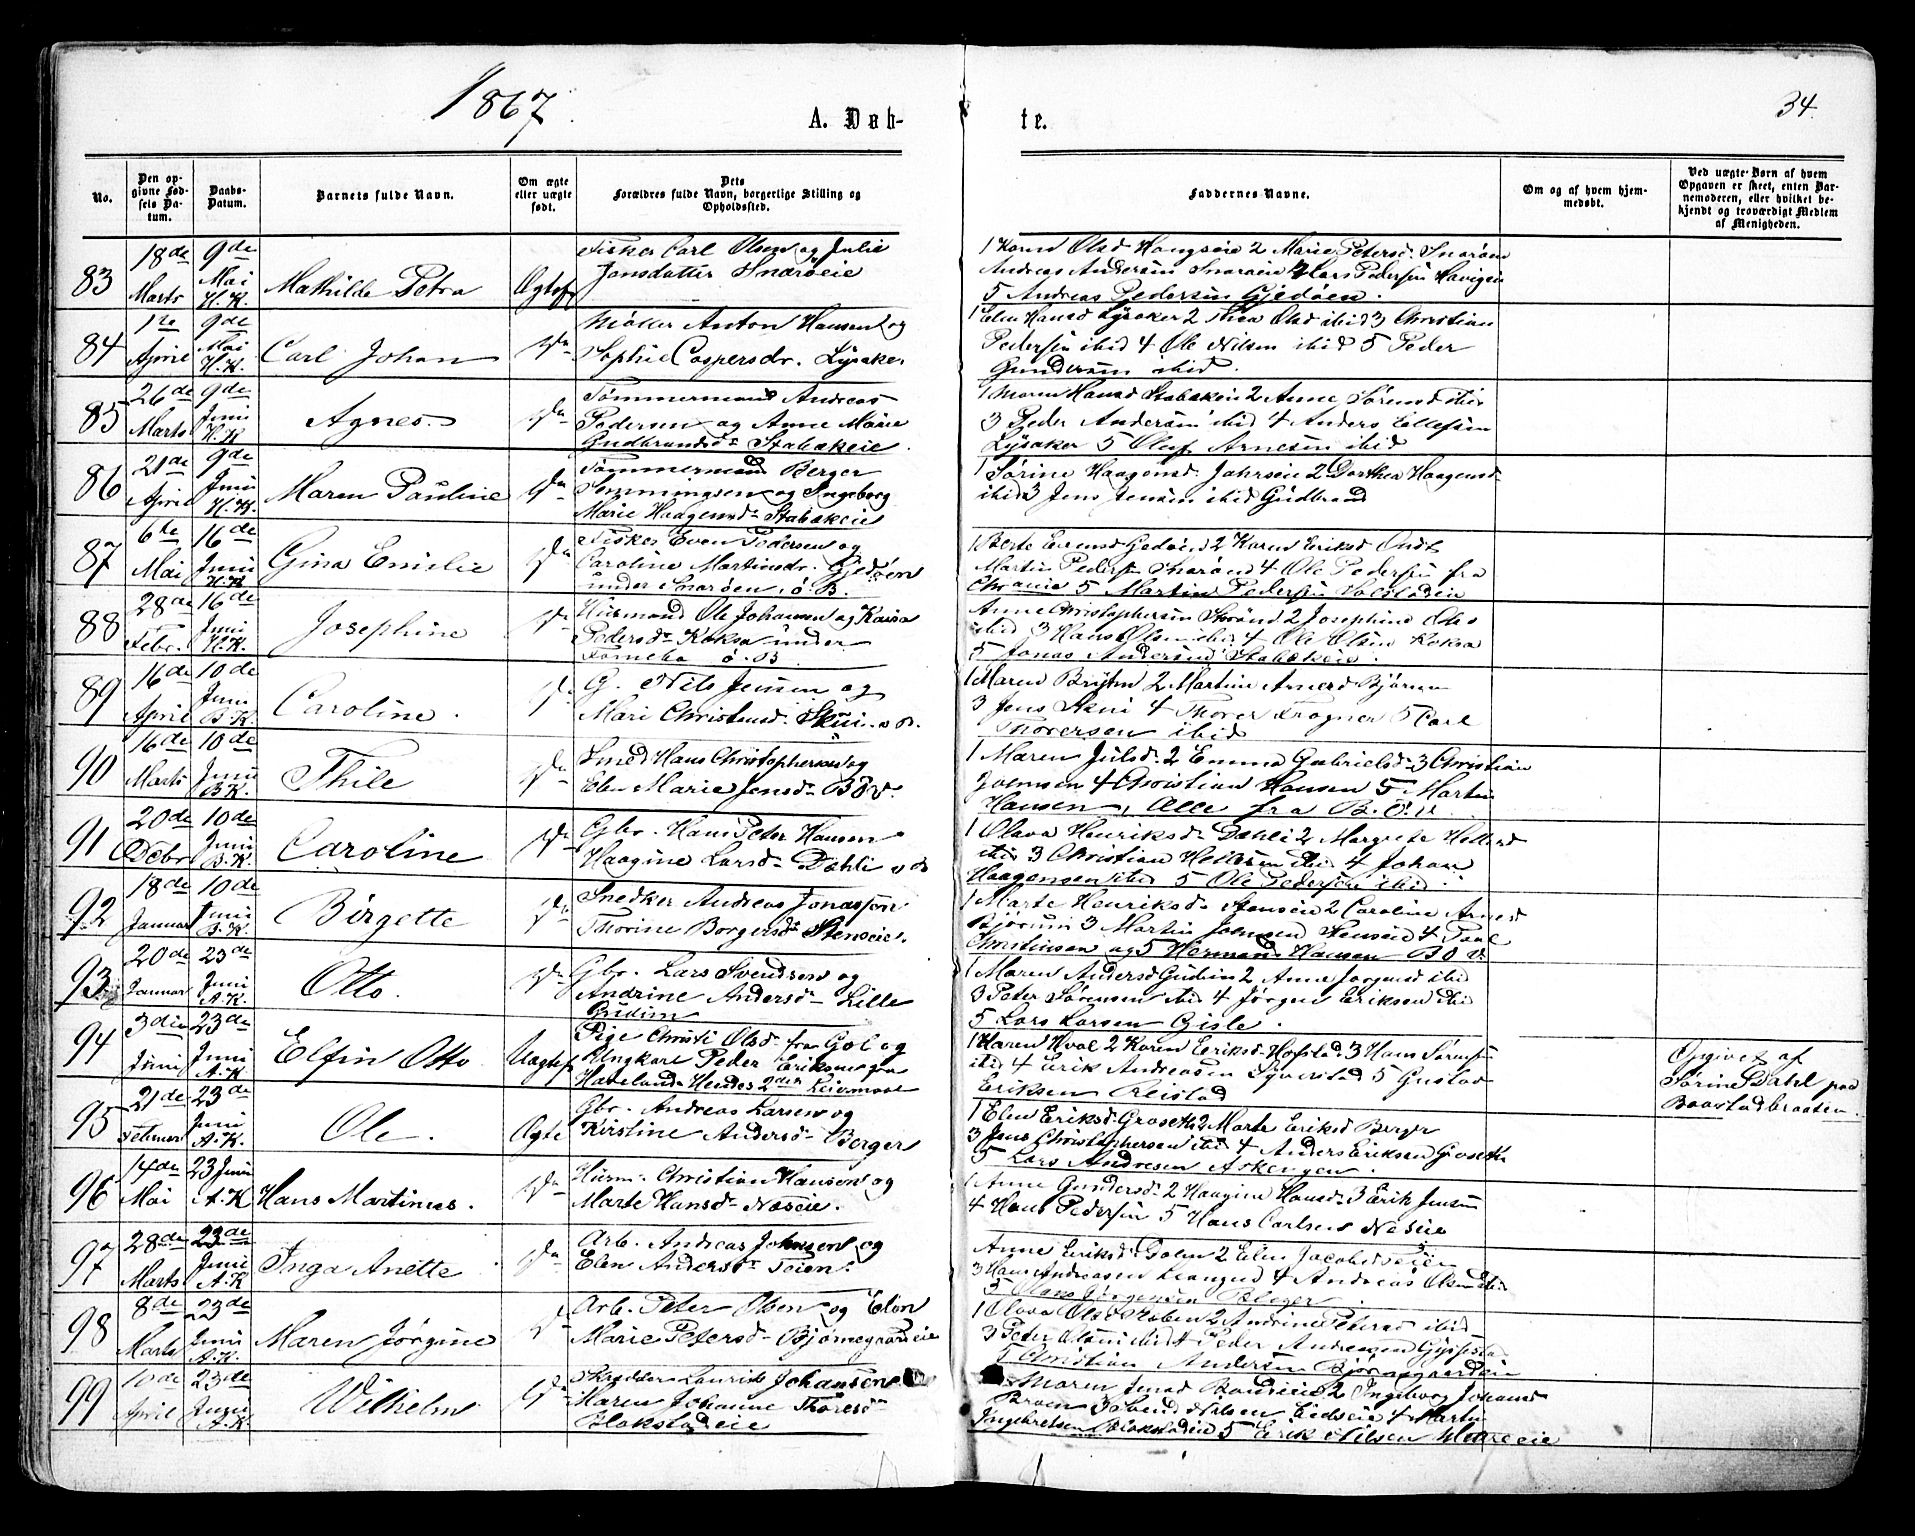 1867
A. Døb-
te.
34.
No.
Den op-
givne Fød-
sels Da-
tum.
Daabs-
Datum.
Barnets fulde Navn.
Om ægte
eller uægte
født.
Dets
Forældres fulde Navn, borgerlige Stilling og
Opholdssted.
Faddernes Navne.
Om og af hvem hjem-
medøbt.
Ved uægte Børn af hvem
Opgaven er skeet, enten Bar-
nemoderen, eller hvilket be-
kjendt og troværdigt Medlem
af Menigheden.
83
18de
Marts
9de
Mai
H. K.
Mathilde Petra
Ægtef
Fisker Carl Olsen og Julie
Jonsdatter Snarøeie
1 Karen Olsd Haugseie 2 Marie Petersd. Snarøen
Andreas Andersen Snarøen 4 Lars Pedersen
5 Andreas Pedersen Gjedøen.
84
1te
April
9de
Mai
H. K.
Carl Johan
Do
Møller Anton Hansen og
Sophie Caspersdr. Lysaker
1 Elen Hansd Lysaker 2 Thea Olsd ibid 3 Christian
Pedersen ibid 4 Ole Nilsen ibid 5 Peder
Gundersen ibid.
85
26de
Marts
9de
Juni
H. K.
Agnes.
Do
Tømmermand Andreas
Pedersen og Anne Marie
Gudbrandsd. Stabækeie.
1 Maren Hansd Stabækeie 2 Anne Sørensd ibid
3 Peder Andersen ibid 4 Anders Ellefsen
Lysaker 5 Oluf Arnesen ibid
86
21de
April
9de
Juni
H. K.
Maren Pauline
Do
Tømmermand Berger
Semmingsen og Ingeborg
Marie Haagensd. Stabækeie
1 Sørine Haagensd. Jahrseie 2 Dorthea Haagensd.
ibid 3 Jens Jensen ibid Gudbrand
87
6te
Mai
16de
Juni
H. K.
Gina Emilie
Do
Fisker Even Pedersen og
Caroline Martinsdr. Gjedøen
under Snarøen, ø. B.
1 Berte Evensd Gedøen 2 Karen Eriksd
Martin Pedersen Snarøen 4 Ole Pedersen fra
Chrania 5 Martin Pedersen
88
28de
Febr.
16de
Juni
H. K.
Josephine
Do
Husmand Ole Johansen og Kaisa
Pedersd. Koksa under
Fornebo ø. B.
Anne Christophersen Strand 2 Josephine Olsd
ibid 3 Hans Olsen ibid 4 Ole Olsen Koksa
5 Jonas Andersen Stabækeie.
89
16de
April
10de
Juni
B. K.
Caroline.
Do
G. Nils Jensen og
Mari Christensd. Skui. v B.
1 Maren 2 Martine Arnesd Bjørum
3 Jens Skui 4 Thorer Frogner 5 Carl
Thoresen ibid
90
16de
Marts
10de
Juni
B K.
Thile
Do
Smed Hans Christophersen og
Elen Marie Jensd. B Ø v.
1 Maren Julsd. 2 Emma Gabrielsd. 3 Christian
4 Christian Hansen 5 Martin
Hansen, Alle fra B. Ø. v.
91
20de
Debr
10de
Juni
B. K.
Caroline
Do
Gbr. Hans Peter Hansen
Haagine Larsd. Dæhli v B
1 Olava Henriksd. Dæhli 2 Margrete
ibid 3 Christian ibid 4 Johan
Haagensen ibid 5 Ole Pedersen ibid.
92
18de
Januar
10de
Juni
B. K.
Birgette
Do
Snedker Andreas Jonassen
Thorine Borgersd. Stenseie.
1 Marte Henriksd. Stenseie 2 Caroline Arnesd
Bjørum 3 Martin Johnsen 4 Paul
Christensen og 5 Herman Hansen B Ø v.
93
20de
Januar
23de
Juni
A. K.
Otto.
Do
Gbr. Lars Svendsen og
Andrine Andersd. Lille
Gudim
1 Maren Andersd Gudim 2 Anne Jørgensd ibid
3 Peter Sørensen ibid 4 Jørgen Eriksen ibid
5 Lars Larsen Gisle.
94
3die
Juni
23de
Juni
A. K.
Elfin Otto
Uægtef
Pige Christi Olsd. fra Gol og
Ungkarl Peder Eriksen fra
Haveland. Hendes 2den Leiermaal
1 Karen Hval 2 Karen Eriksd. Hofstad 3 Hans Sørensen
ibid 4 Erik Andreasen 5 Gustav
Eriksen Reistad
Opgivet af
Sørine Dahl paa
Baastadbraaten.
95
21de
Februar
23de
Juni
A. K.
Ole.
Ægte
Gbr. Andreas Larsen og
Kirstine Andersd. Berger
1 Elen Eriksd. Groseth 2 Marte Eriksd Berger
3 Jens Christophersen ibid 4 Anders Eriksen Groseth
5 Lars Andresen Askengen.
96
14de
Mai
23 Juni
A. K
Hans Martinus.
Do
Husm. Christian Hansen og
Marte Hansd. Næseie.
1 Anne Gundersd. 2 Haagine Hansd. 3 Erik Jensen
4 Hans Pedersen 5 Hans Carlsen Næseie
97
28de
Marts
23de
Juni
A. K
Inga Anette
Do
Arb. Andreas Johnsen og
Elen Andersd.
Anne Eriksd. 2 Elen Jacobsd
3 Hans Andreasen 4 Andreas Olsen ibid
5 Hans Jørgensen
98
8de
Marts
23de
Juni
A. K.
Maren Jørgine
Do
Arb. Peter Olsen og Elen
Marie Petersd. Bjørnegaardeie
1 Olava Olsd 2 Andrine Petersd ibid
3 Peter Olsen ibid 4 Peder Andreasen
5 Christian Andersen Bjørnegaardeie
99
10de
April
23de
Juni
A. K
Wilhelm
Do
Skrædder Laurits Johansen
Maren Johanne Thoresd.
Blakstadeie
Maren Jensd 2 Ingeborg Johansd
Braten 3 Svend Nilsen 4 Martin
Ingebretsen Blakstadeie 5 Erik Nilsen